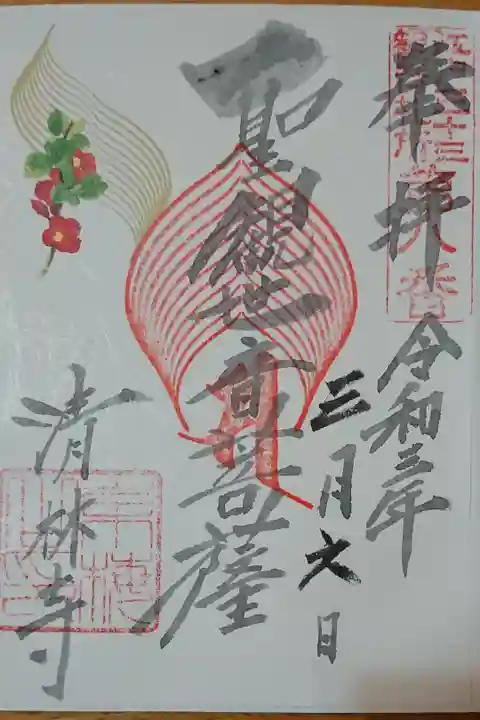 奉拝
令和三年
三月六日
聖観世音菩薩
清林寺